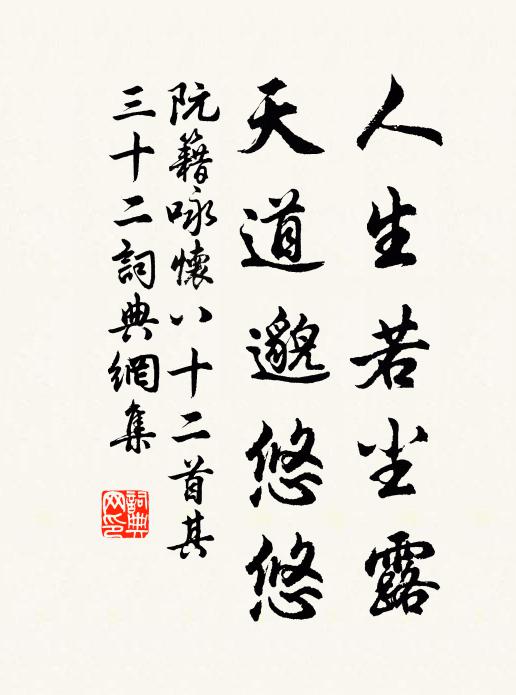 人生若尘露
天道邈悠悠
阮籍咏懷八十二首其
三十二詞典網集
詞典
网印